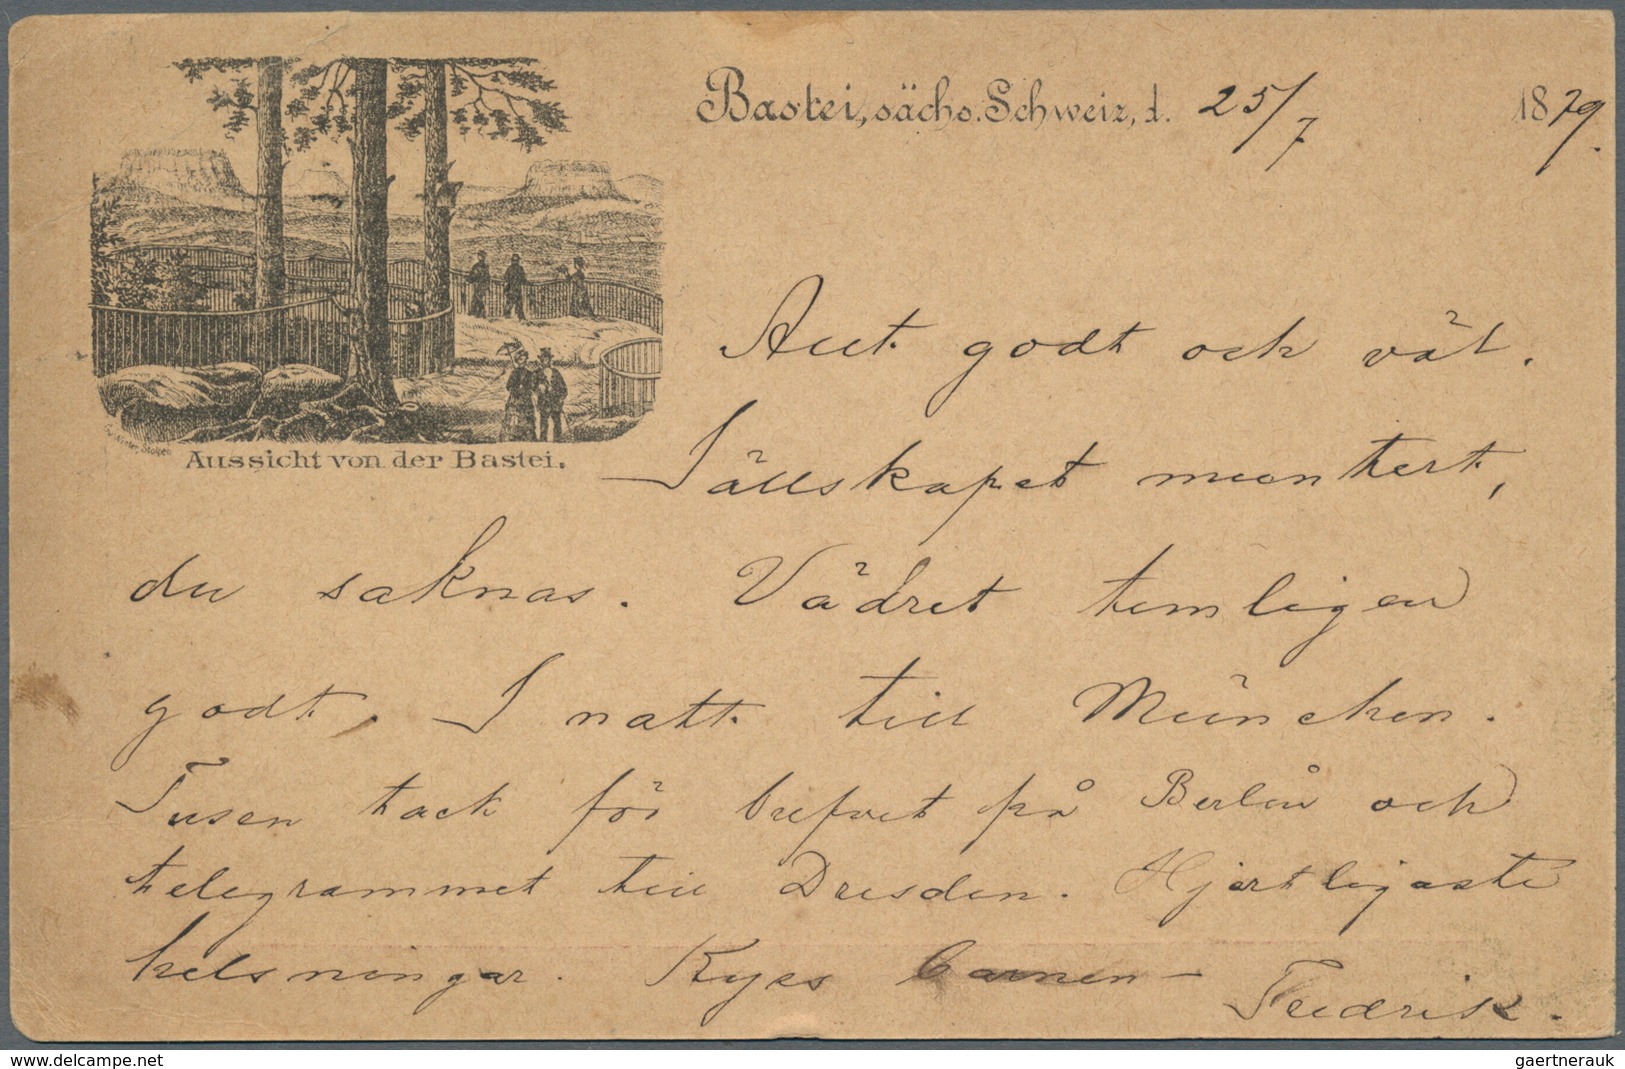 Bastei, sächs. Schweiz, d. 25/7 1879.
Allt godt och väl.
Aussicht von der Bastei.
Sällskapet muntert,
du saknas. Vädret temligen
godt. I natt till München.
Tusen tack för brefvet på Berlin och
telegrammet till Dresden. Hjertligaste
helsningar. Kyss barnen —
Fredrik.
delcampe.net
gaertnerauk